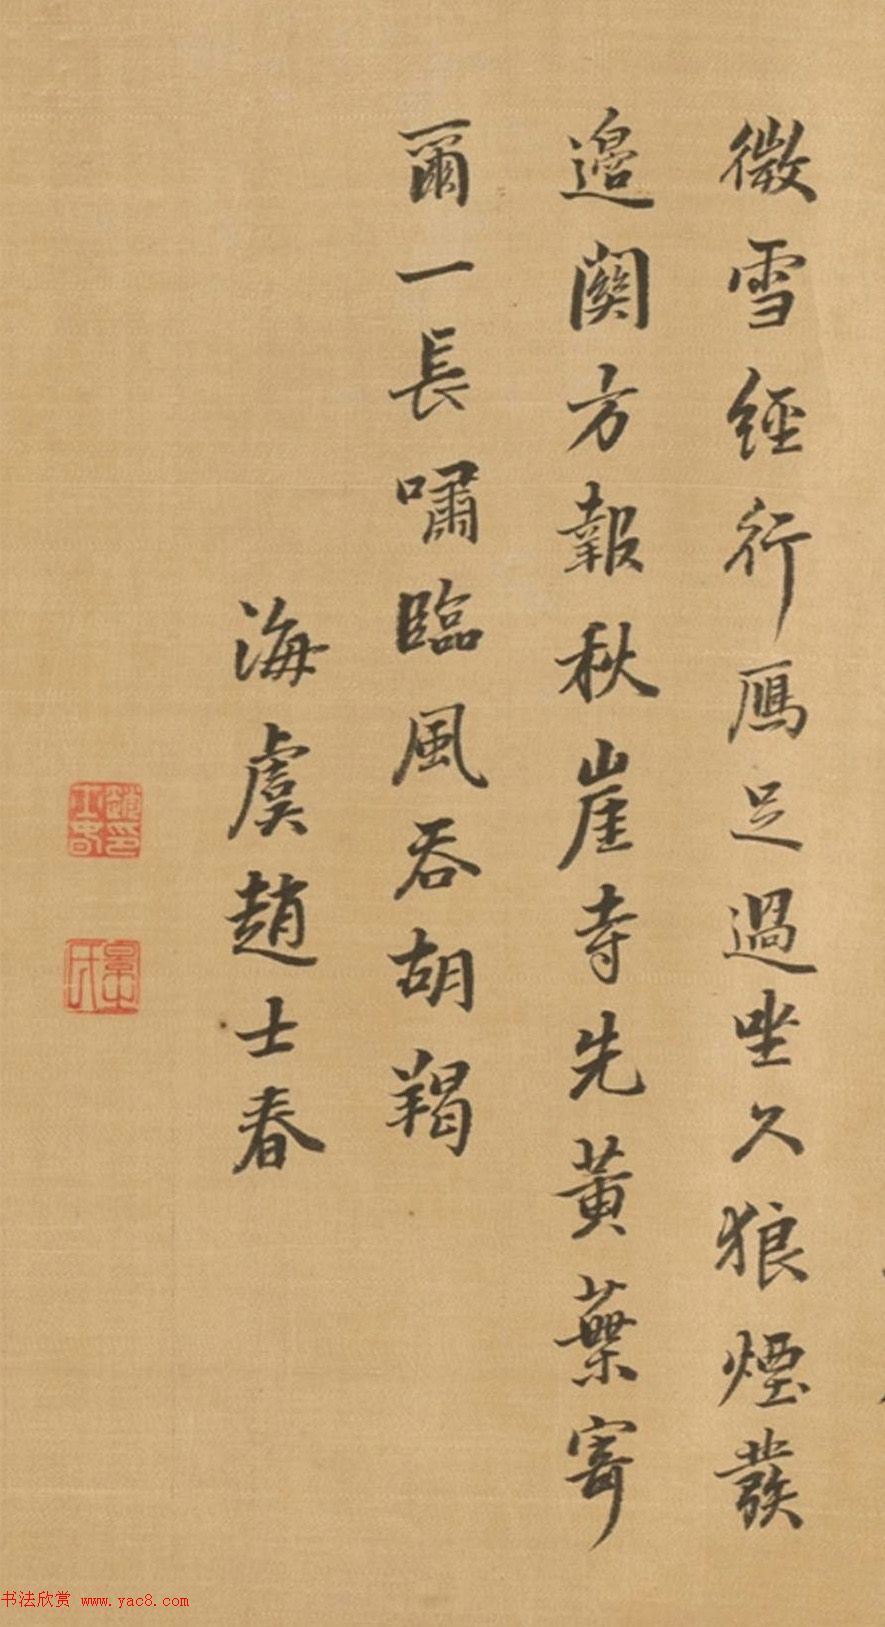 微雪經行鴈足過坐久狼煙發
邉關方報秋崖寺先黃葉寄
爾一長嘯臨風吞胡羯
海虞趙士春
趙印士春
书法欣赏 www.yac8.com